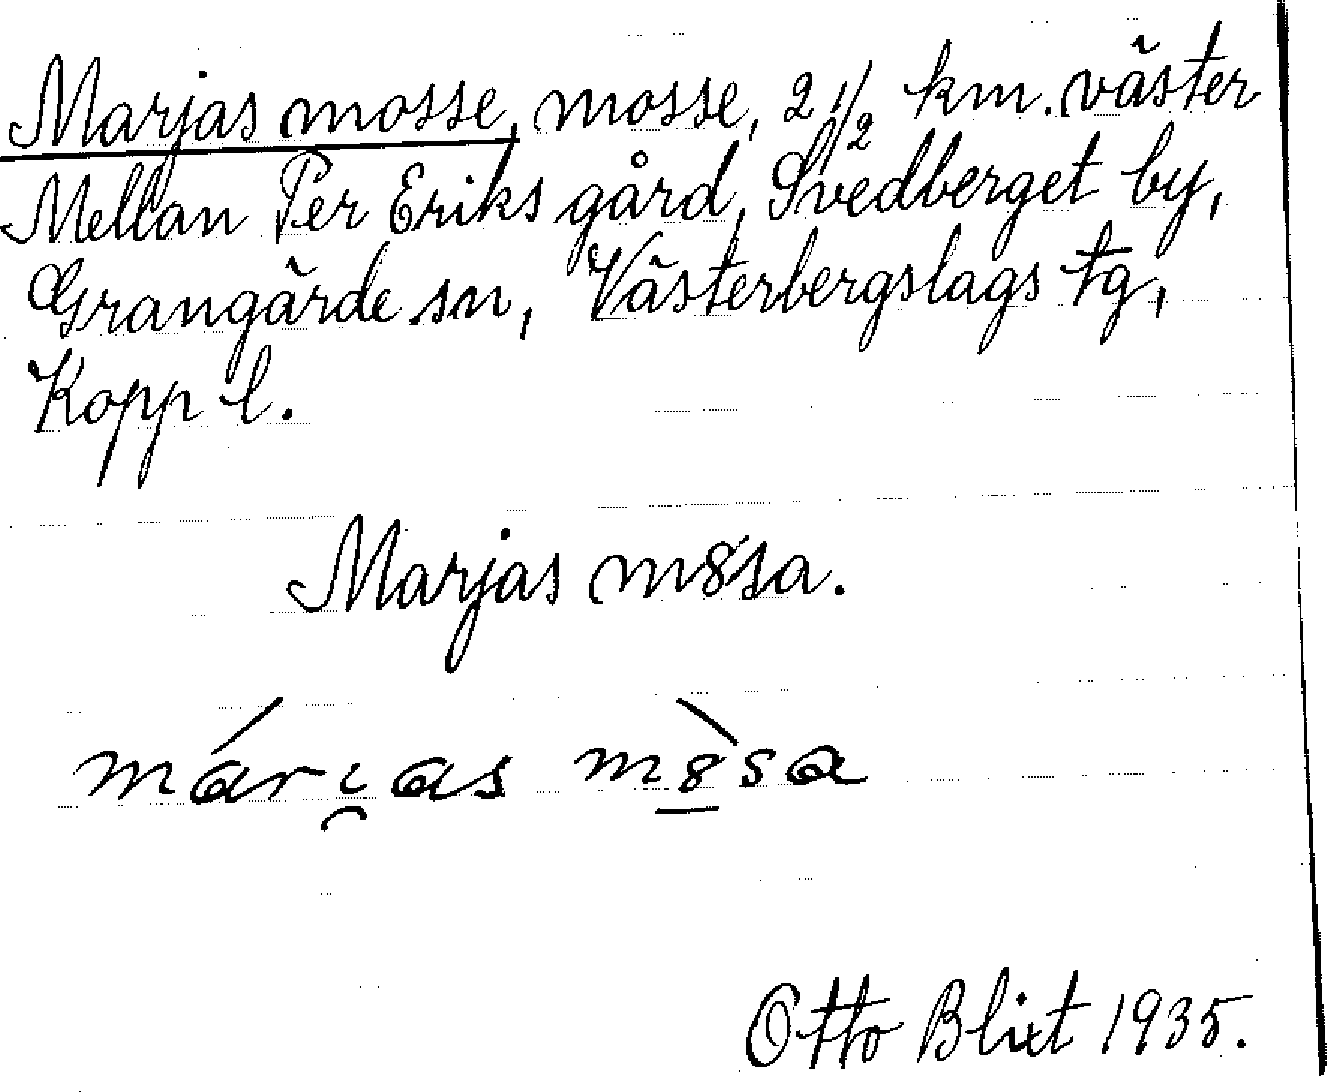 Marjas mosse, mosse, 2 1/2 km. väster
Mellan Per Eriks gård, Svedberget by,
Grangärde sn, Västerbergslags tg,
Kopp l.
Marjas m8sa.
márı̯as m8̱̀sa
Otto Blixt 1935.